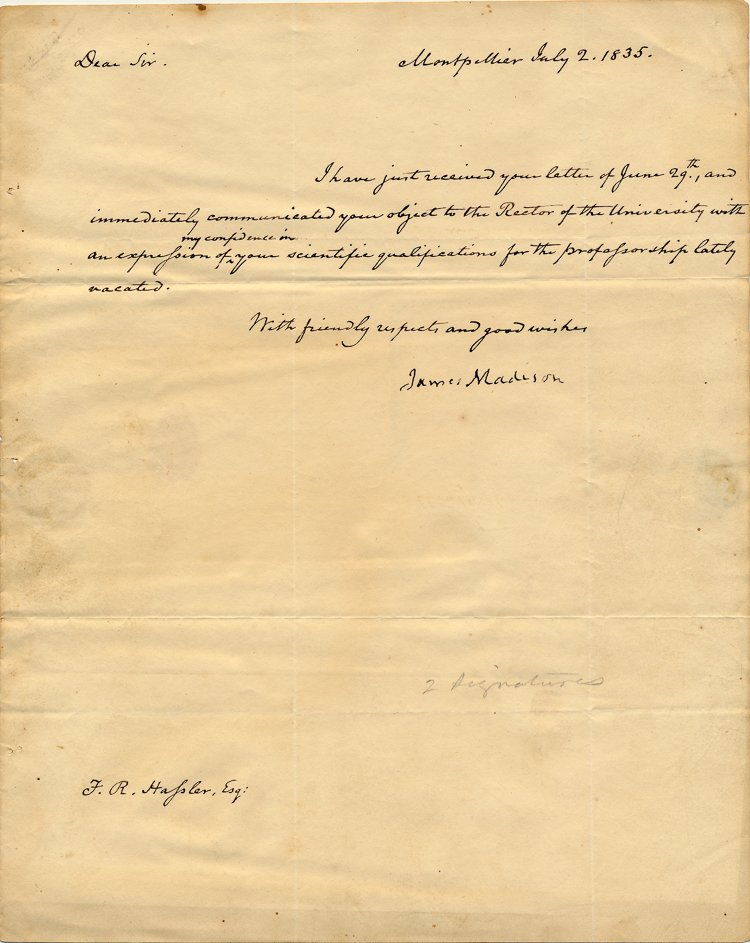 Dear Sir. Montpellier July 2. 1835.
I have just received your letter of June 29th., and
immediately communicated your object to the Rector of the University with
my confidence in
an expression of ^ your scientific qualifications for the professorship lately
vacated.
With friendly respects and good wishes
James Madison
2 signatures
F. R. Hassler, Esq: